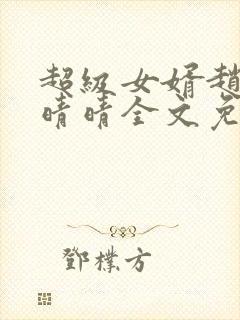 超級女婿趙
晴晴全文免
鄧樸方